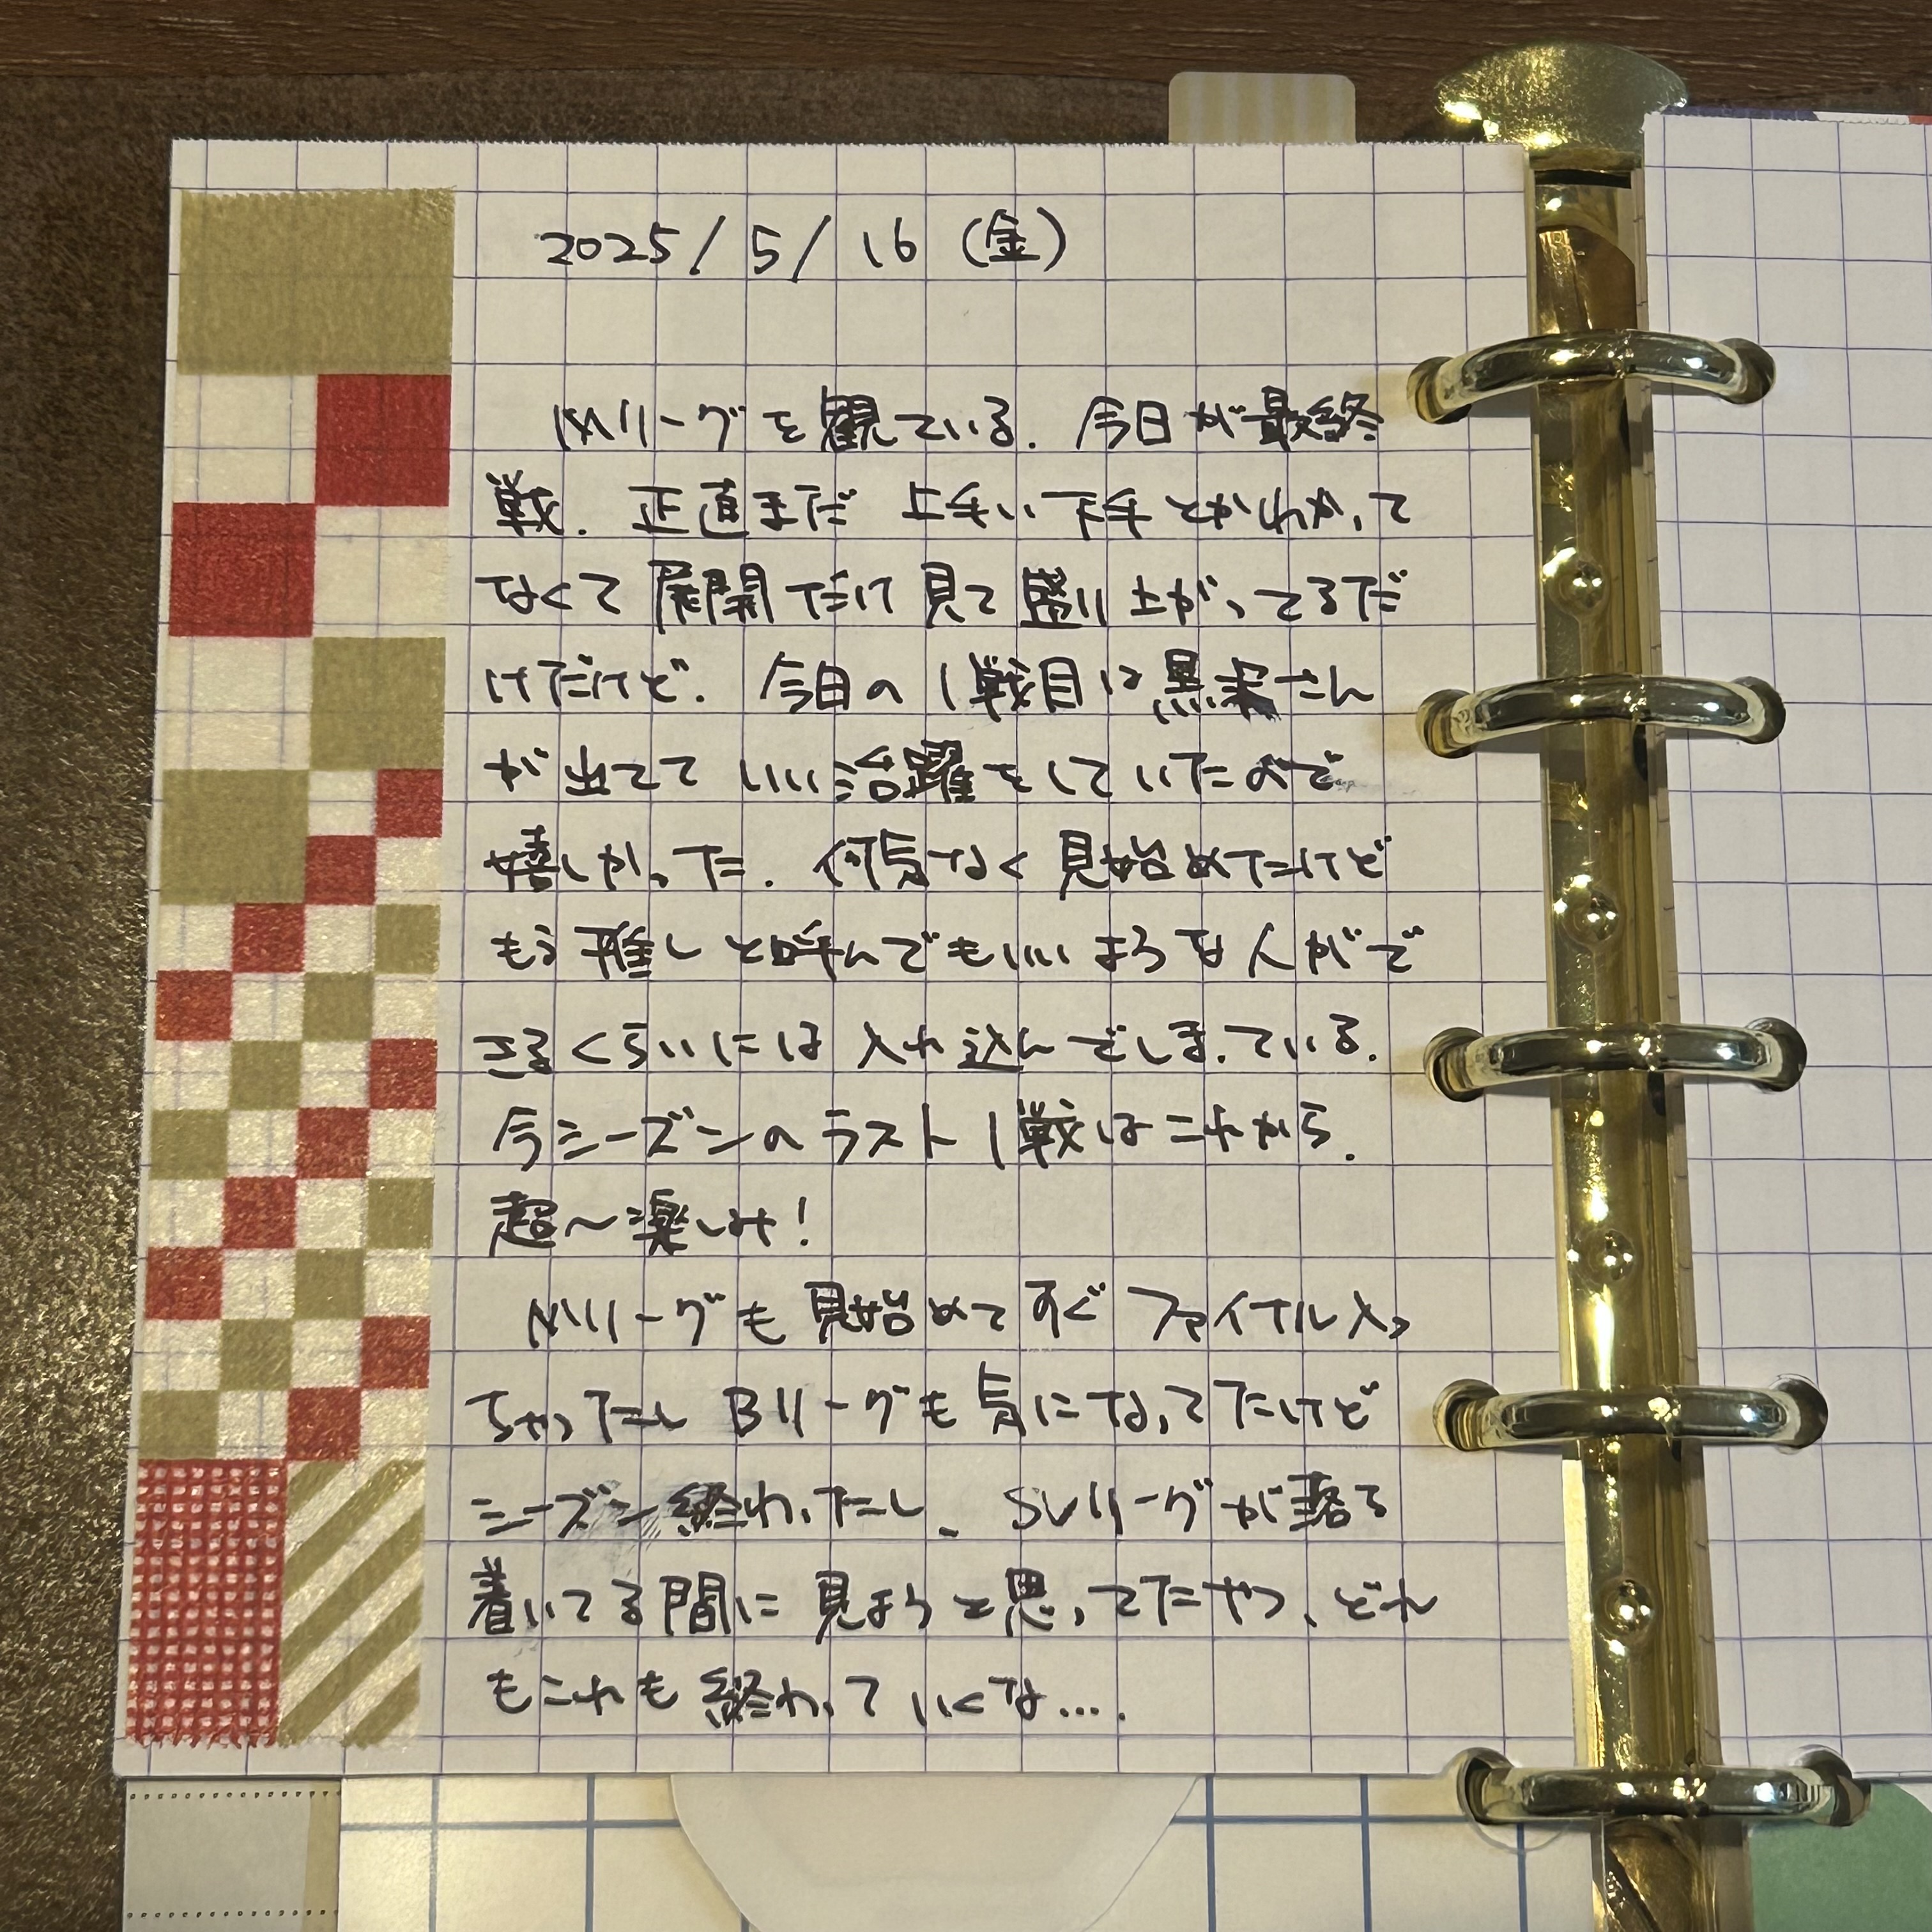 2025/5/16（金）
Mリーグを観ている．今日が最終
戦．正直まだ上手い下手とかわかって
なくて展開だけ見て盛り上がってるだ
けだけど．今日の1戦目は黒沢さん
が出てていい活躍をしていたので
嬉しかった．何気なく見始めたけど
もう推しと呼んでもいいような人がで
きるくらいには入れ込んでしまっている．
今シーズンのラスト1戦はこれから．
超〜楽しみ！
Mリーグも見始めてすぐファイナル入っ
ちゃったし Bリーグも気になってたけど
シーズン終わったし、SVリーグが落ち
着いてる間に見ようと思ってたやつ、どれ
もこれも終わっていくな….